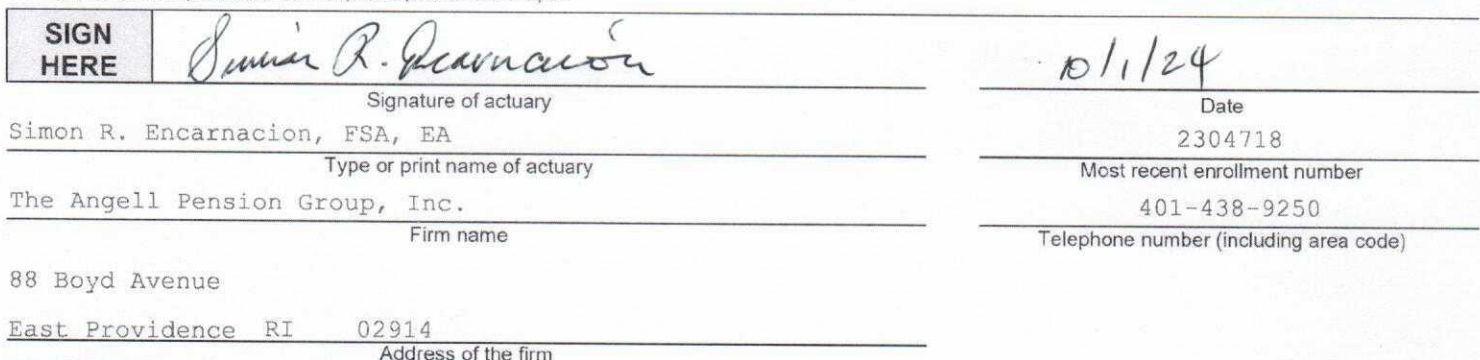 SIGN
HERE
Simón R. Encarnación
10/1/24
Signature of actuary
Date
Simon R. Encarnacion, FSA, EA
2304718
Type or print name of actuary
Most recent enrollment number
The Angell Pension Group, Inc.
401-438-9250
Firm name
Telephone number (including area code)
88 Boyd Avenue
East Providence RI 02914
Address of the firm